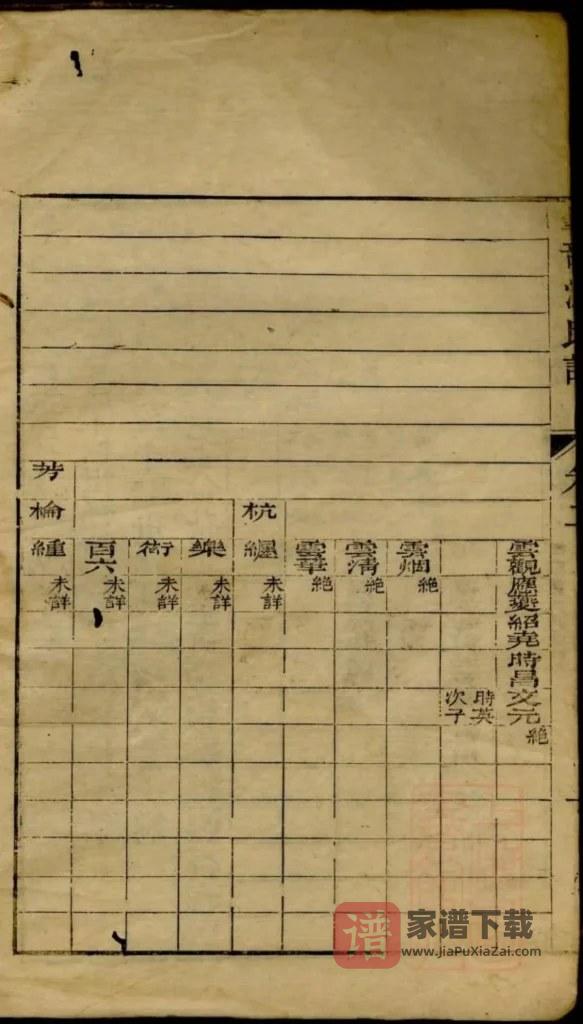 氏譜
雲觀應夔紹堯時昌文元絕
時英
次子
雲烟絕
雲清絕
雲華絕
杭纒未詳
樂未詳
未詳
百六未詳
芳棆緟未詳
谱 家谱下载
www.JiaPuXiaZai.com